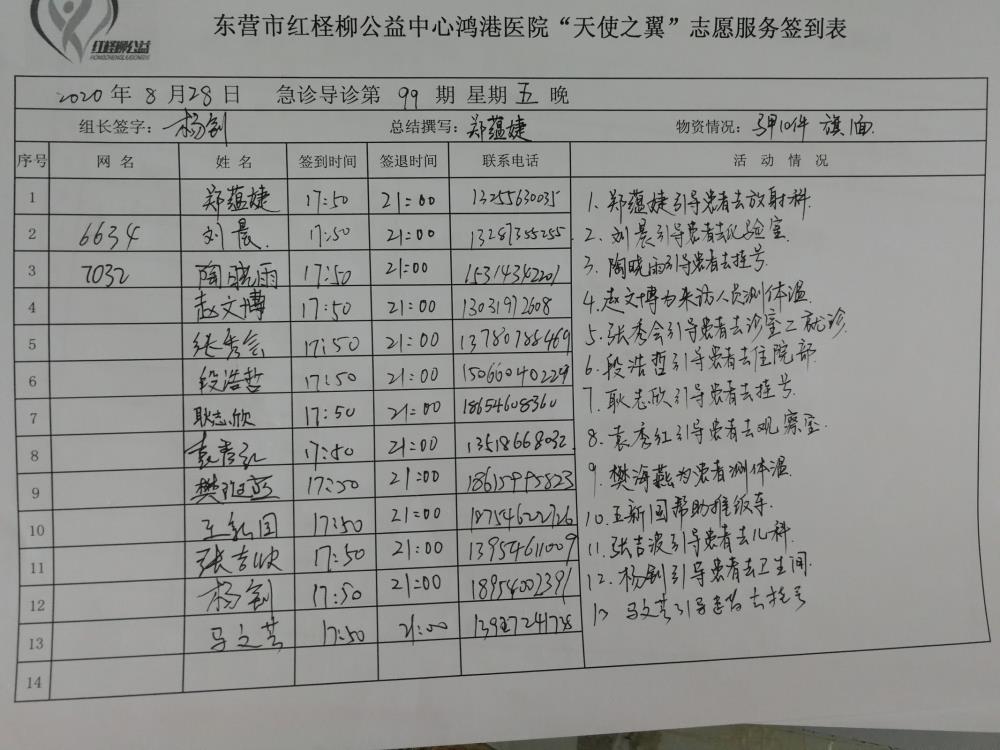 红柽柳公益
HONGCHENGLIUGONGYI
东营市红柽柳公益中心鸿港医院“天使之翼”志愿服务签到表
2020 年 8 月 28 日 急诊导诊第 99 期 星期 五 晚
组长签字: 杨剑 总结撰写: 郑蕴婕 物资情况: 马甲10件 旗1面.
序号 网名 姓名 签到时间 签退时间 联系电话 活动情况
1 郑蕴婕 17:50 21:00 13255630035
2 6634 刘晨. 17:50 21:00 13287355255
3 7032 陶晓雨 17:50 21:00 15314342201
4 赵文博 17:50 21:00 13031972608
5 张秀会 17:50 21:00 13780788469
6 段浩哲 17:50 21:00 15066040229
7 耿志欣 17:50 21:00 18654608360
8 袁秀红 17:50 21:00 13518668032
9 樊海燕 17:50 21:00 18615995823
10 王新国 17:50 21:00 18754622726
11 张吉波 17:50 21:00 13954611009
12 杨剑 17:50 21:00 18954002391
13 马文芸 17:50 21:00
14
1. 郑蕴婕引导患者去放射科.
2. 刘晨引导患者去化验室.
3. 陶晓雨引导患者去挂号.
4. 赵文博为来访人员测体温.
5. 张秀会引导患者去诊室二就诊.
6. 段浩哲引导患者去住院部.
7. 耿志欣引导患者去挂号.
8. 袁秀红引导患者去观察室.
9. 樊海燕为患者测体温.
10. 王新国帮助推板车.
11. 张吉波引导患者去儿科.
12. 杨剑引导患者去卫生间.
13 马文芸引导患者去挂号